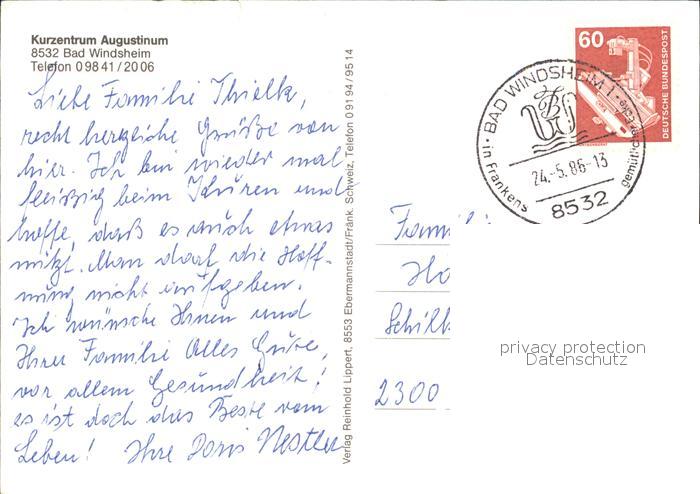 Kurzentrum Augustinum
8532 Bad Windsheim
Telefon 0 98 41 / 20 06
Liebe Familie Thielk,
recht herzliche Grüße von
hier. Ich bin wieder mal
fleißig beim Kuren und
hoffe, daß es auch etwas
nützt. Man darf die Hoff-
nung nicht aufgeben.
Ich wünsche Ihnen und
Ihrer Familie Alles Gute,
vor allem Gesundheit!
es ist doch das Beste vom
Leben! Ihre Doris Nestler
Verlag Reinhold Lippert, 8553 Ebermannstadt/Fränk. Schweiz, Telefon 0 91 94 / 95 14
60
DEUTSCHE BUNDESPOST
BAD WINDSHEIM 1
in Frankens gemütlicher Ecke
24.-5.86-13
8532
Famili
Ho
Schilk
2300
privacy protection
Datenschutz